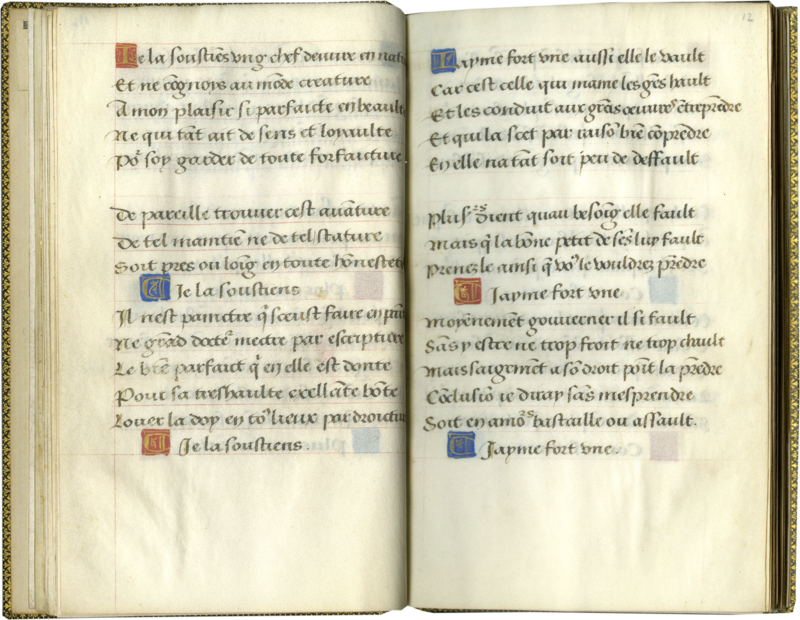 Je la soustiēs ung chef deuure en natu
Et ne cōgnoys au mōde creature
A mon plaisir si parfaicte en beaulte
Ne qui tāt ait de sens et loyaulte
Po᷑ soy garder de toute forfaicture
De pareille trouuer cest auāture
De tel maintiē ne de tel stature
Soit pres ou loīg en toute hōnestete
Je la soustiens
Il nest paindre q̄ sceust faire en
Ne grād docte᷑ mectre par escripture
Le biē parfaict q̄ en elle est donte
Pour sa treshaulte exellāte bōte
Louer la doy en to⁹ lieux par droictu
Je la soustiens.
12
Jayme fort vne aussi elle le vault
Car cest celle qui mame les grās hault
Et les conduit aux grās oeuures ētreprēdre
Et qui la scet par raisō biē cōprēdre
En elle na tāt soit peu de deffault
Plus⁹ˢ dient quau besoīg elle fault
Mais q̄ la bōne petit de sēs luy fault
Prenez le ainsi q̄ vo⁹ le vouldrez prēdre
Jayme fort vne
Moyēnemēt gouuerner il si fault
Sās y estre ne trop froit ne trop chault
Mais saigemēt a sō droit poīt la prēdre
Cōclusiō ie diray sās mesprendre
Soit en amo⁹ˢ bastaille ou assault.
Jayme fort vne.